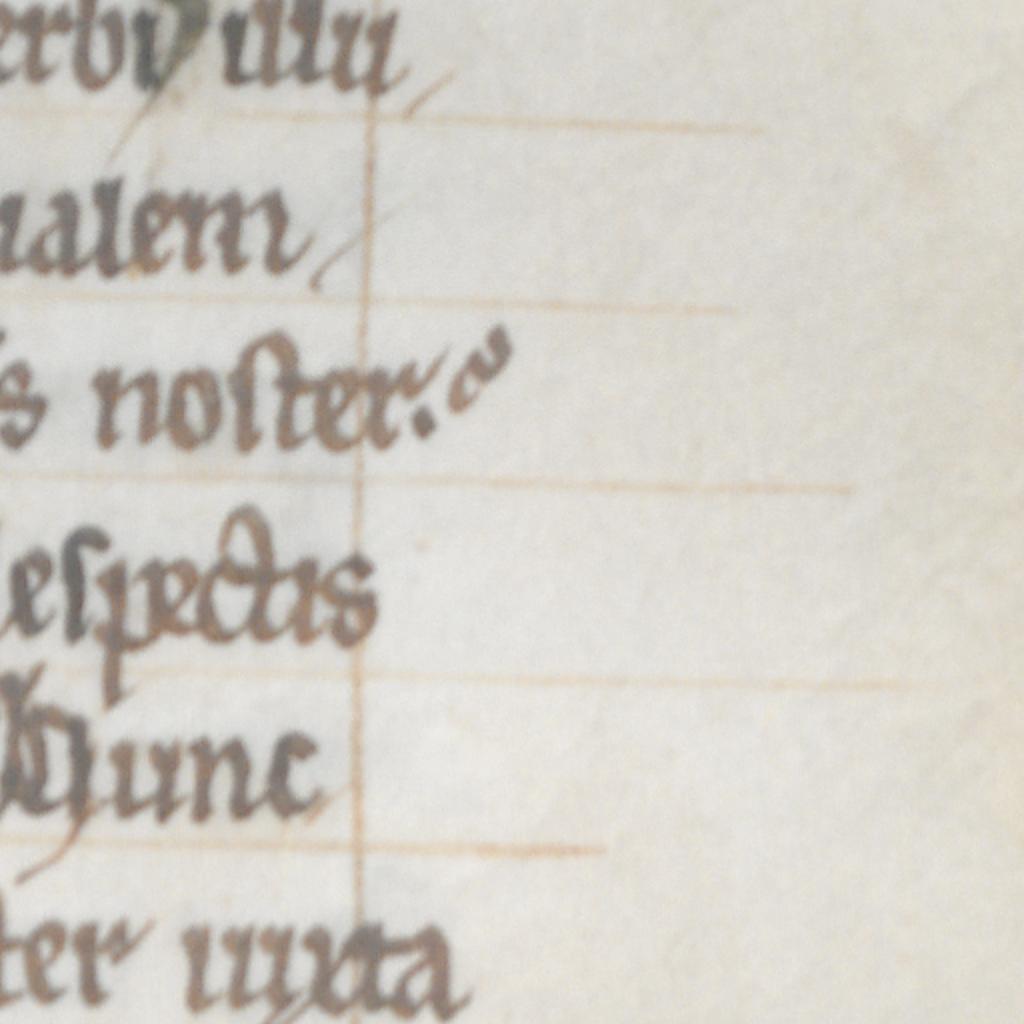 erbi illu
ualem
s noster.
espectis
hunc
ter iuxta